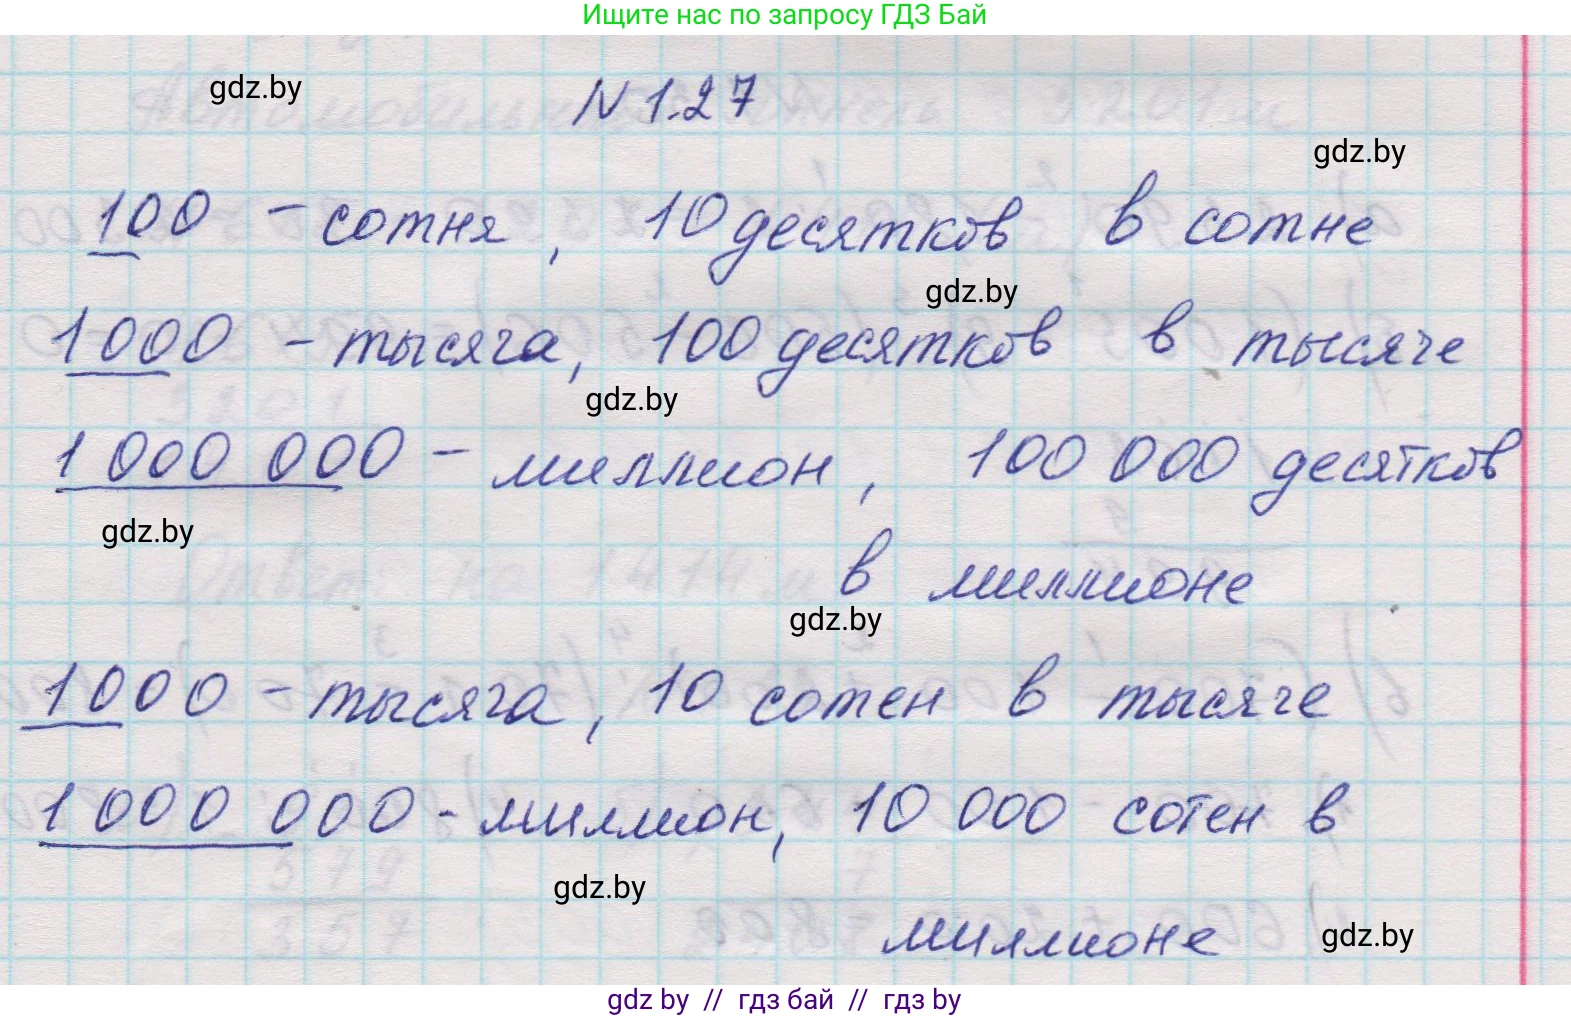 Ищите нас по запросу ГДЗ Бай
gdz.by
N 1.27
gdz.by
100 - сотня, 10 десятков в сотне
gdz.by
1000 - тысяча, 100 десятков в тысяче
gdz.by
1 000 000 - миллион, 100 000 десятков
gdz.by
в миллионе
gdz.by
1000 - тысяча, 10 сотен в тысяче
1 000 000 - миллион, 10 000 сотен в
gdz.by
миллионе
gdz.by
gdz by // гдз бай // гдз by